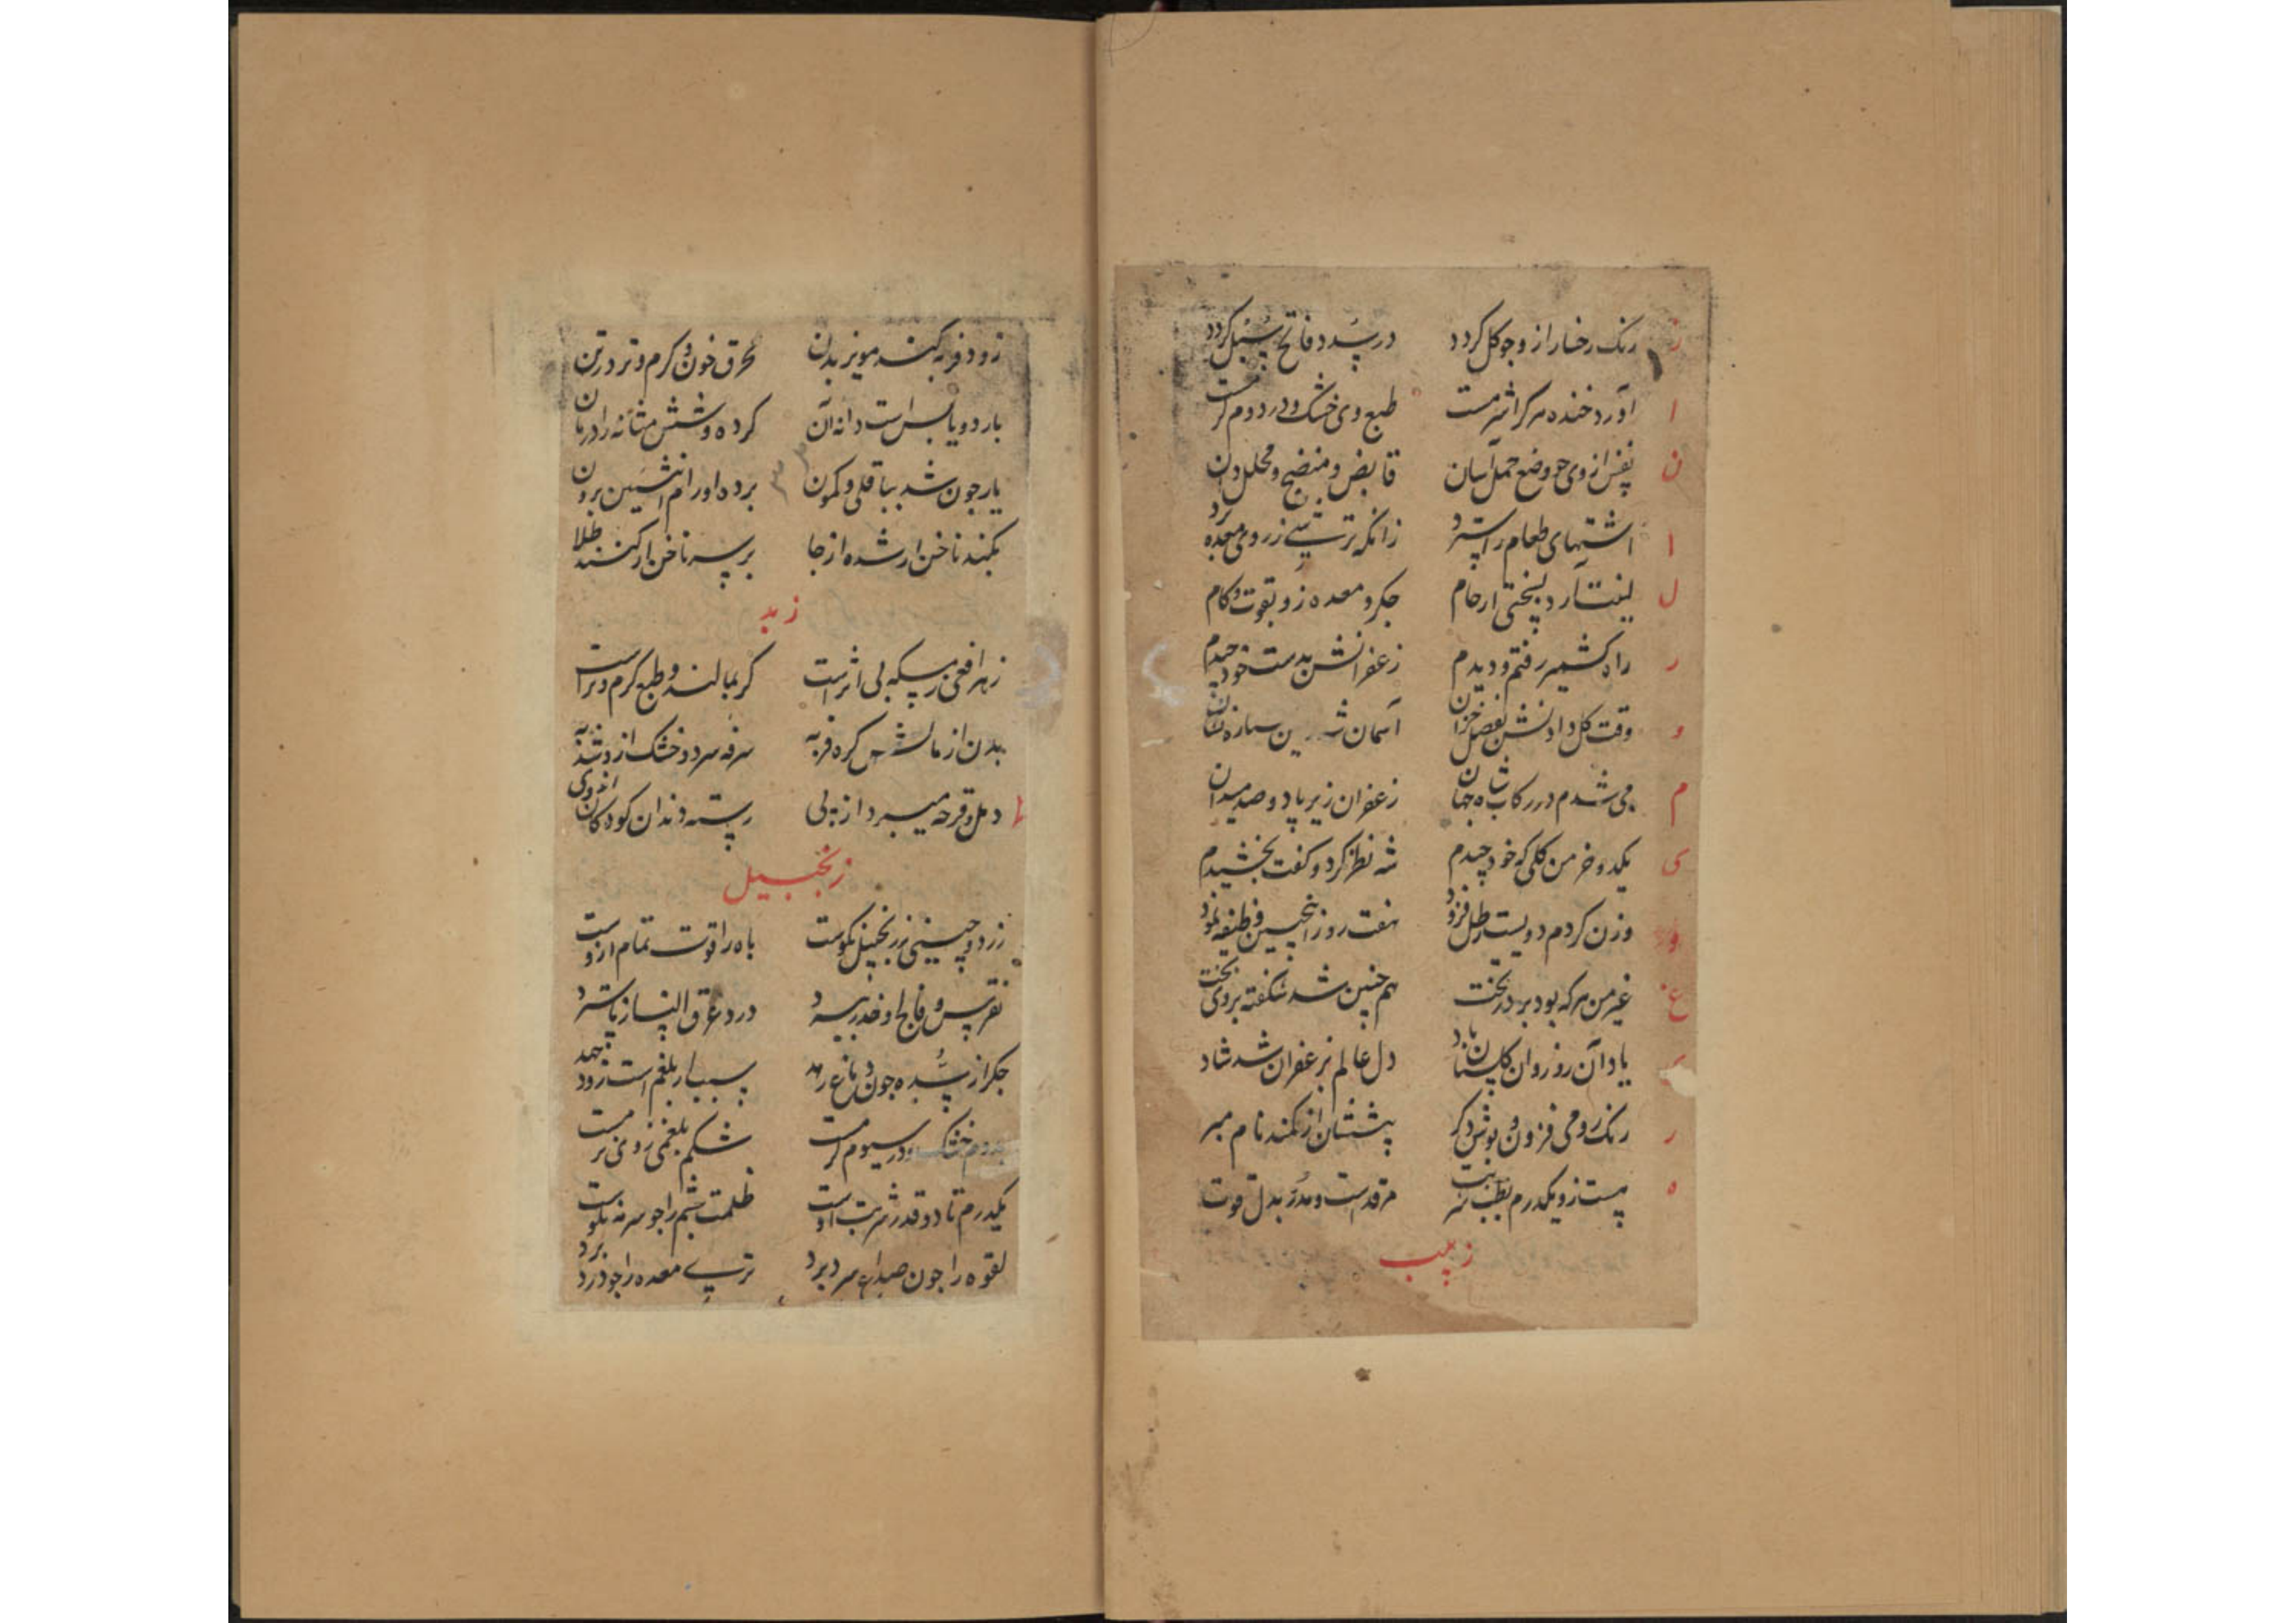 ز رنک رخسار ازو جو کل کردد در سُدد فاتح سُبُل کردد
ا آورد خنده هر کرا شرمست طبع وی خشک و در دوم کرمست
ن نفس از وی جو وضع حمل آسان قابض و منضج و محلل دان
ا اشتهای طعام را سترد زانکه ترشی ز روی معده برد
ل لینت آرد بسختی ارحام جکر و معده زو بقوت و کام
ر راه کشمیر رفتم و دیدم زعفرانش بدست خود چیدم
و وقت کل دادنش بفصل خزان آسمان شد زمین ستاره نشان
م می شدم در رکاب شاه جهان زعفران زیر پا دو صد میدان
ی یکدو خرمن کلی که خود چیدم شه نظر کرد و کفت بخشیدم
و وزن کردم دویست رطل فزود هفت روز انجنین وظیفه نمود
غ غیر من هر که بود بر در تخت هم جنین شد شکفته بروی بخت
یاد آن روز و ان کلستان باد دل عالم بزعفران شد شاد
ر رنک رومی فزون و بوش دکر پشتشان از کمند نام مبر
ه هست زو یکدرم بطب شربت مرقدست و مُدُر بدل قوت
زبیب
زود فربه کند مویز بدن محرق خون و کرم و تر در تن
بارد و یابس است دانه آن کرده و شش مثانه را درمان
یار جون شد بباقلی و کمون برده اورام انثیین برون
بکند ناخن ار شده از جا بر سر ناخن ار کنند طلا
زبد
زهر افعی ز مسکه بی اثر است کر بمالند و طبع کرم و تر است
بدن از مالشش کره فربه سرفه سرد و خشک ازو شد به
دمل و قرحه میبرد از پی رسته دندان کودکان از وی
زنجبیل
زرد و چینی ز زنجبیل نکوست باه را قوت تمام ازوست
نقرس و فالج او خدر ببرد درد عرق النسا ز پا سترد
جکر از سُدّه جون دماغ رهد سبب ار بلغم است زود جهد
خشک و در سیوم کرمست شکم بلغمی ز وی نرمست
یکدرم تا دو قدر شربت اوست ظلمت چشم را جو سرمه نکوست
لقوه را جون صداع سرد برد ترب معده را جو درد برد